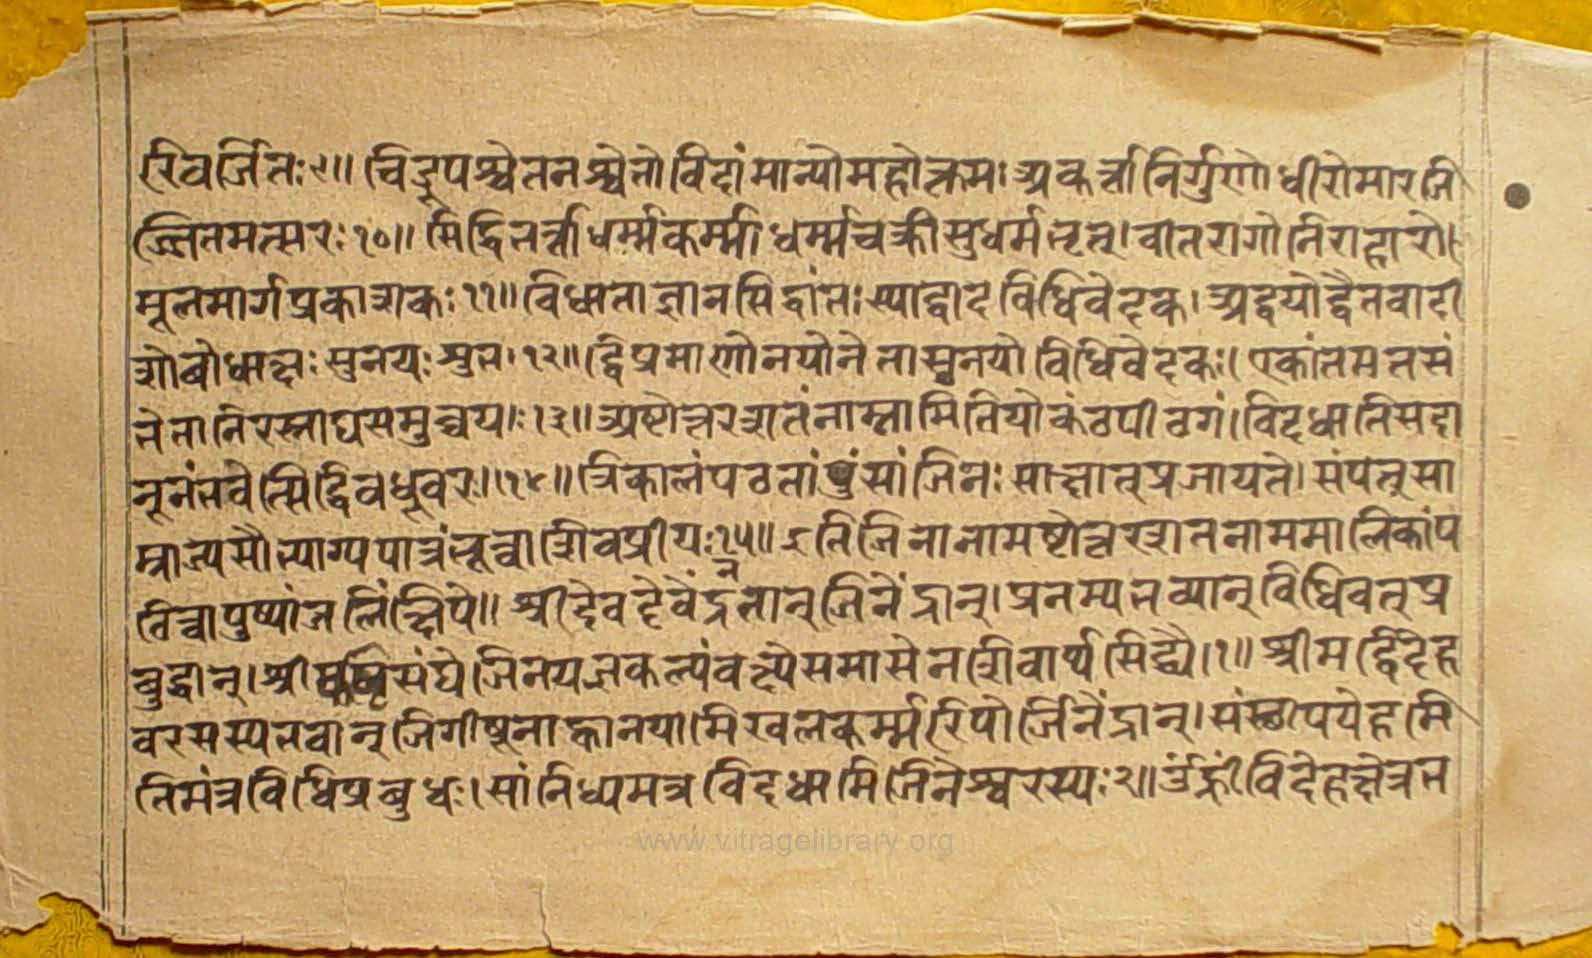 रिवर्जितः९॥ चिद्रूपश्चेतनश्चेतो विदांमान्योमहोत्तमः अकर्त्तानिर्गुणोधीरोमारजि
ज्जितमत्सरः१०॥ सिद्धिभर्त्ताधर्म्मकर्म्मा धर्म्मचक्रीसुधर्मभृत्। वीतरागोनिराहारो।
मूलमार्गप्रकाशकः११॥ विधाताज्ञानसिद्धांतः स्याद्वादविधिवेदक। अद्वयोद्वैतवादी
शोबोधात्मः सुनयः श्रुत।१२॥ द्विप्रमाणोनयोनेतासुनयो विधिवेदकः। एकांतमतसं
नेतानिरस्ताघसमुच्चयः।१३॥ अष्टोत्तरशतंनाम्नामितियोकंठपीठगं। विदधातिसदा
नूनंभवेत्सिद्धिवधूवरः।।१४॥ त्रिकालंपठतांपुंसांजिनः साक्षात्प्रजायते। संपत्सा
म्राज्यसौभाग्यपात्रंभूत्वाशिवप्रीयः१५॥ इतिजिनानामष्टोत्तरशतनाममालिकांप
ठित्वापुष्पांजलिंक्षिपे॥ श्रीदेवदेवेंद्रनतान्जिनेंद्रान्। प्रनम्यभव्यान्विधिवत्प्र
बुद्धान्। श्री संघे जिनयज्ञकल्पंवक्ष्येसमासेनशिवार्थसिद्ध्यै।१॥ श्रीमद्विदेह
वरसस्यभवान्जिगीषूनाह्वानयामिखलकर्म्मरिपोर्जिनेंद्रान्। संस्थापयेहमि
तिमंत्रविधिप्रबुधः। सांनिध्यमत्रविदधामिजिनेश्वरस्यः२॥ ॐह्रीं विदेहक्षेत्रभ
www.vitragelibrary.org